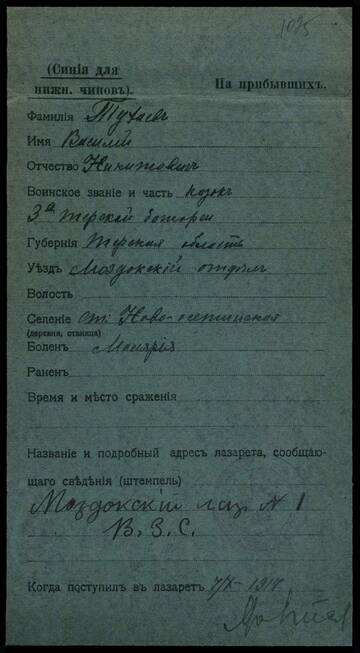 1035
(Синія для
нижн. чиновъ).
На прибывшихъ.
Фамилія Тухаевъ
Имя Василій
Отчество Никитовичъ
Воинское званіе и часть козак
3й терской батареи
Губернія Терская область
Уѣздъ Моздокскій отдѣлъ
Волость
Селеніе ст. Ново-осетинская
(деревня, станица)
Боленъ Малярія
Раненъ
Время и мѣсто сраженія
Названіе и подробный адресъ лазарета, сообщаю-
щаго свѣдѣнія (штемпель)
Моздокскій лаз. N 1
В. З. С.
Когда поступилъ въ лазаретъ 7/X - 191